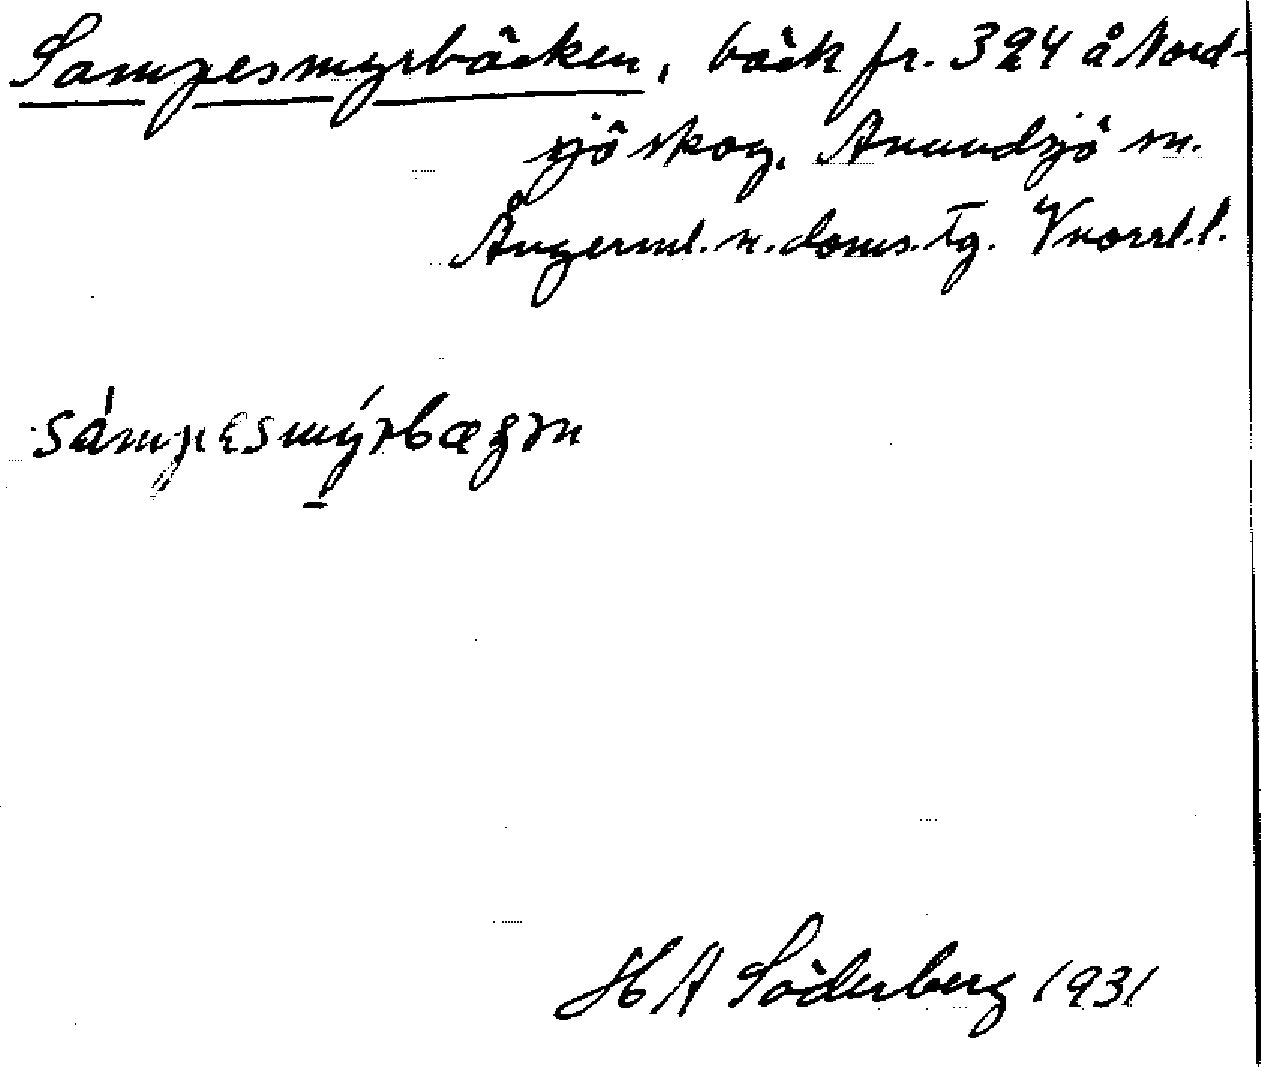 Sampesmyrbäcken, bäck fr. 324 å Nord-
sjö skog. Anundsjö sn.
Ångerml. n. doms. tg. Vnorrl. l.
sámpɛsmýrbæʒ̣m
H A Söderberg 1931